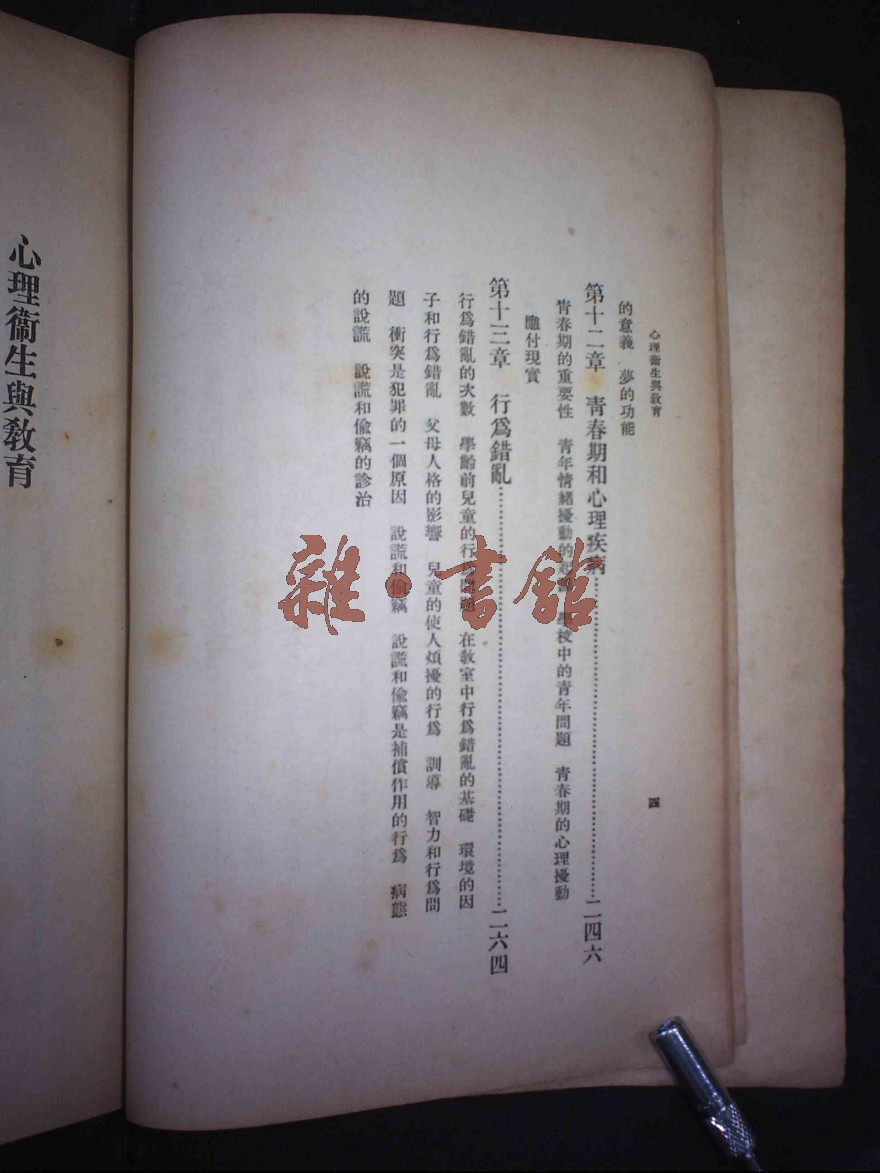 心理衞生與教育
四
的意義　夢的功能
第十二章　青春期和心理疾病……二四六
青春期的重要性　青年情緒擾動的　學校中的青年問題　青春期的心理擾動
應付現實
第十三章　行爲錯亂……二六四
行爲錯亂的次數　學齡前兒童的行爲問題　在教室中行爲錯亂的基礎　環境的因
子和行爲錯亂　父母人格的影響　兒童的使人煩擾的行爲　訓導　智力和行爲問
題　衝突是犯罪的一個原因　說謊和偷竊　說謊和偷竊是補償作用的行爲　病態
的說謊　說謊和偷竊的診治
心理衞生與教育
雜·書館